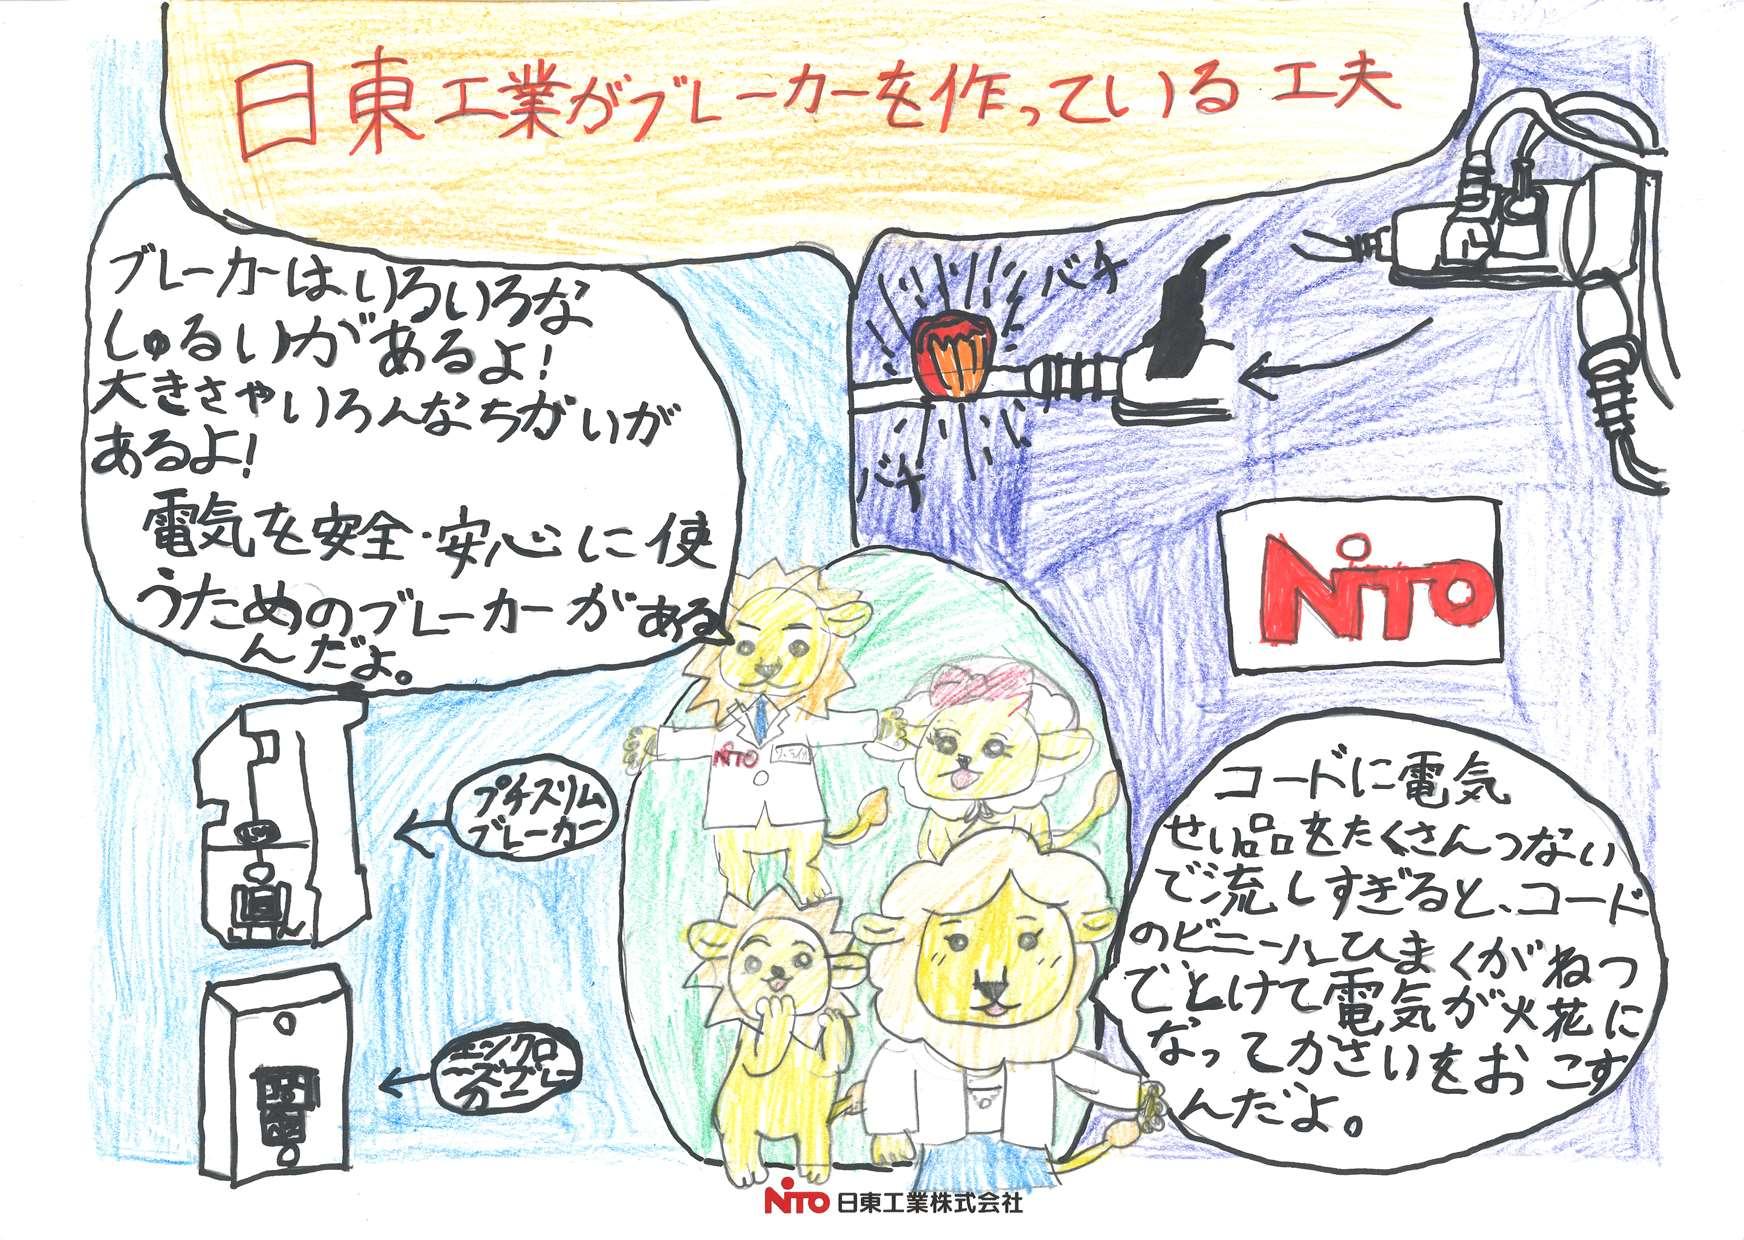 日東工業がブレーカーを作っている工夫
ブレーカーはいろいろな
しゅるいがあるよ!
大きさやいろんなちがいが
あるよ!
電気を安全・安心に使
うためのブレーカーがある
んだよ。
バチ
バチ
NiTO
NiTO
プチスリム
ブレーカー
エンクロ
ーズブレー
カー
コードに電気
せい品をたくさんつない
で流しすぎると、コード
のビニールひまくがねつ
でとけて電気が火花に
なってかさいをおこす
んだよ。
NiTO 日東工業株式会社